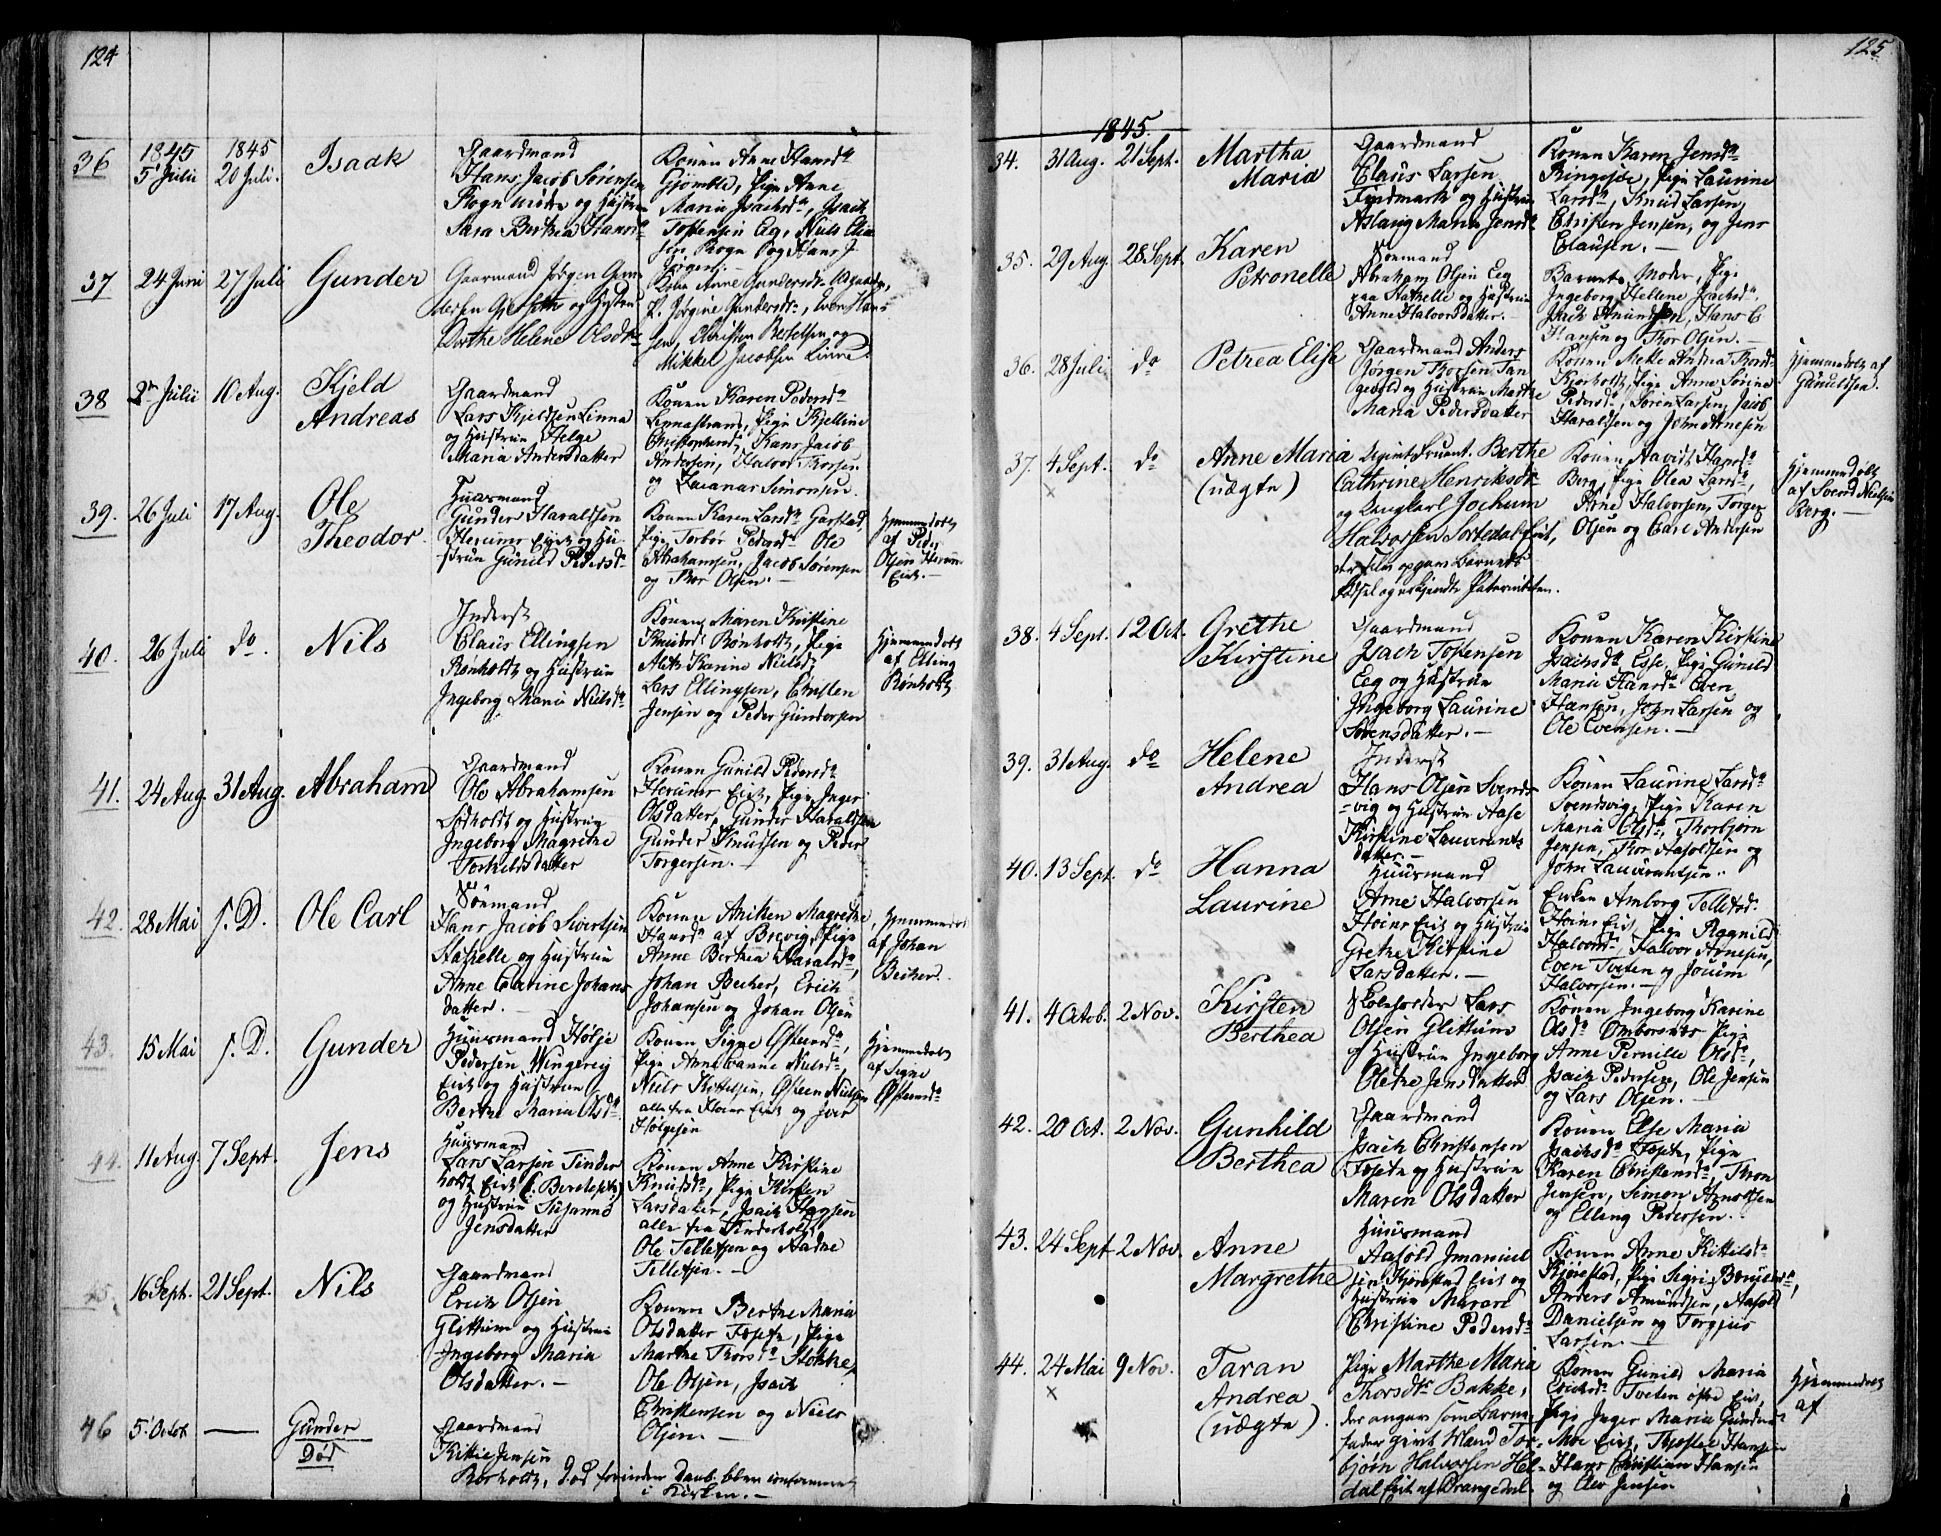 124
36
1845
5 Julii
1845
20 Juli.
Isaak
Gaardmand
Hans Jacob Sörensen
Rogn indre og Hustru
Sara Berthea Hansd
Konen Anne Hansd
Gjömle, Pige Anne
Maria Isachsd, Isach
Tostensen Eeg, Niels Olsen
37
24 Juni
27 Juli
Gunder
Gaarmand Jörgen Gun
dersen og Hustru
Dorthe Helene Olsd
Kone Anne Gundersd
P. Jörgine Gundersd, Even Hans
sen, Christen Bertelsen og
Mikkel Jacobsen Linne.
38
Julii
10 Aug.
Kjeld
Andreas
Gaardmand
Lars Kjeldsen Linna
og Hustrue Helge
Maria Andersdatter
Konen Karen Pedersd
Linnastrand, Pige Kjelline
Christophersd, Hans Jacob
Andersen, Halvor Thorsen
og Zacarias Simonsen.
39.
26 Juli
17 Aug.
Ole
Theodor.
Huusmand
Gunder Haraldsen
Herum Eiet og Hu-
strue Gunild Pedersd
Konen Karen Larsd Garstad,
Pige Torbor Pedersd Ole
Abrahamsen, Jacob Sörensen
og Thor Olsen.
Hjemmedöbt
af Peder
Olsen Herum
Eiet.
40.
26 Juli
do.
Nils
Inderst
Claus Ellingsen
Rönholt og Hustrue
Ingeborg Maria Nielsd
Konen Maren Kirstine
Knudsd Rönholt, Pige
Karine Nielsd
Lars Ellingsen, Christen
Jensen og Peder Gundersen
Hjemmedöbt
af Elling
Rönholt
41.
24 Aug.
31 Aug.
Abraham
Gaardmand
Ole Abrahamsen
og Hustrue
Ingeborg Magrethe
Torkildsdatter
Konen Gunild Pedersd
Herum Eiet, Pige Inger
Olsdatter, Gunder Haraldsen
Gunder Knudsen og Peder
Torgersen.
42.
28 Mai
s. D.
Ole Carl
Sömand
Hans Jacob Sivertsen
Stathelle og Hustrue
Anne Carine Johans
datter.
Konen Aniken Magrethe
Hansd af Brevig, Pige
Anne Berthea Haralsd,
Johan Becker, Erich
Johansen og Johan Olsen
Hjemmedöbt
af Johan
Becker.
43.
15 Mai
s. D.
Gunder
Huusmand Holje
Pedersen Wingereig
Eiet og Hustrue
Berthe Maria Olsd
Konen Signe Östensd,
Pige Anne Hanne Nielsd,
Niels Kittelsen, Östeen Nielsen
alle fra Eiet og Iver
Holgesen
Hjemmedöbt
af Signe
Östensd
44.
11 Aug.
7 Sept.
Jens
Huusmand
Lars Larsen Tinder
holt Eiet
og Hustrue Susanne
Jensdatter
Konen Anne Kirstine
Knudsd, Pige Kirsten
Larsdatter, Isach
alle fra Tinderholt
Ole Tellefsen og Aadne
Tellefsen.
45.
16 Sept.
21 Sept.
Nils
Gaardmand
Erich Olsen
Glittum og Hustrue
Ingeborg Maria
Olsdatter.
Konen Berthe Maria
Olsdatter Tosete, Pige
Marthe Thorsd Stokke,
Ole Olsen, Isach
Christensen og Niels
Olsen.
46
5 Octob
Gunder
Död
Gaardmand
Kittil Jensen
Borholt, död forinden Daab. blev confirmeret
i Kirken.
125.
1845.
34.
31 Aug.
21 Sept.
Martha
Maria
Gaardmand
Claus Larsen
Findmark og Hustrue
Aslaug Maria Jensd
Konen Karen Jensd
Ringsjöe, Pige Laurine
Larsd, Knud Larsen,
Christen Jensen, og Jens
Clausen.
35.
29 Aug.
28 Sept.
Karen
Petronelle
Sömand
Abraham Olsen Eeg
paa Stathelle og Hustrue
Anne Halvorsdatter.
Barnets Moder, Pige
Ingeborg Hellene Isachsd,
Isach Amundsen, Hans C
Hansen og Thor Olsen.
36.
28 Juli
do
Petrea Elise
Gaardmand Anders
Jörgen Thorsen Tan
gevald og Hustrue Marthe
Maria Pedersdatter
Konen Mette Andrea Thordsd
Kjerholt, Pige Anne Sörine
Pedersd, Sören Larsen, Jacob
Haraldsen og John Arnesen
Hjemmedöbt af
Gunuldsen.
37.
4 Sept.
do
Anne Maria
(uægte)
Logint. Fruent. Berthe
Cathrine Henriksd
og Ungkarl Jochum
Halvorsen Sortedal Eiet,
der selv opgav Barnets
Födsel og erkjendte Paterniteten.
Konen Hansd
Berg, Pige Olea Larsd,
Arne Halvorsen, Torger
Olsen og Carl Andersen
Hjemmedöbt
af Svend Nielsen
Berg.
38.
4 Sept.
12 Oct.
Grethe
Kirstine
Gaardmand
Isach Tostensen
Eeg og Hustrue
Ingeborg Laurine
Sörensdatter.
Konen Karen Kirstine
Isachsd Esse, Pige Gunild
Maria Hansd Even
Hansen, John Larsen og
Ole Evensen.
39.
31 Aug.
do
Helene
Andrea
Inderst
Hans Olsen Svends
vig og Hustrue Aase
Kirstine Lauerants
datter.
Konen Laurine Larsd
Svendsvig, Pige Karen
Maria Olsd, Thorbjörn
Jensen, Thor Aasoldsen og
John Laverantsen.
40.
13 Sept.
do
Hanna
Laurine
Huusmand
Arne Halvorsen
Eiet og Hustrue
Grethe Kirstine
Larsdatter.
Enken Amborg Tellefsd.
Eiet, Pige Ragnild
Halvorsd, Halvor Arnesen,
Even Tveten og Jörum
Halvorsen.
41.
4 Octob.
2 Nov.
Kirsten
Berthea
Skoleholder Lars
Olsen Glittum
og Hustrue Ingeborg
Olethe Jensdatter
Konen Ingeborg Karine
Olsd Omborsnes Pige
Anne Pernille Olsd,
Isach Pedersen, Ole Jensen
og Lars Olsen.
42.
20 Oct.
2 Nov.
Gunhild
Berthea
Gaardmand
Isach Christensen
Tosete og Hustrue
Maren Olsdatter
Konen Else Maria
Isachsd Tosete, Pige
Karen Christensd Thron
Jensen, Simon Arnoldsen
og Elling Pedersen.
43.
24 Sept
2 Nov.
Anne
Margrethe
Huusmand
Aasold Imanuel
sen Kjörestad Eiet og
Hustrue Maren
Christine Pedersd
Konen Anne Kittilsd
Kjörestad, Pige Sigri
Anders Amundsen, Aasold
Danielsen og Torgjus
Larsen.
44.
24 Mai
9 Nov.
Taran
Andrea
(uægte).
Pige Marthe Maria
Thorsd Bakke,
der angav som Barne-
fader givt Mand Tor-
björn Halvorsen Hel-
dal Eiet af Drangedal.
Konen Gunild Maria
Erichsd Tveten östre Eiet,
Pige Inger Maria Gundersd
Moe Eiet, Tjostel Hansen
Hans Christian Hansen
og Elev Jensen
Hjemmedöbt
af